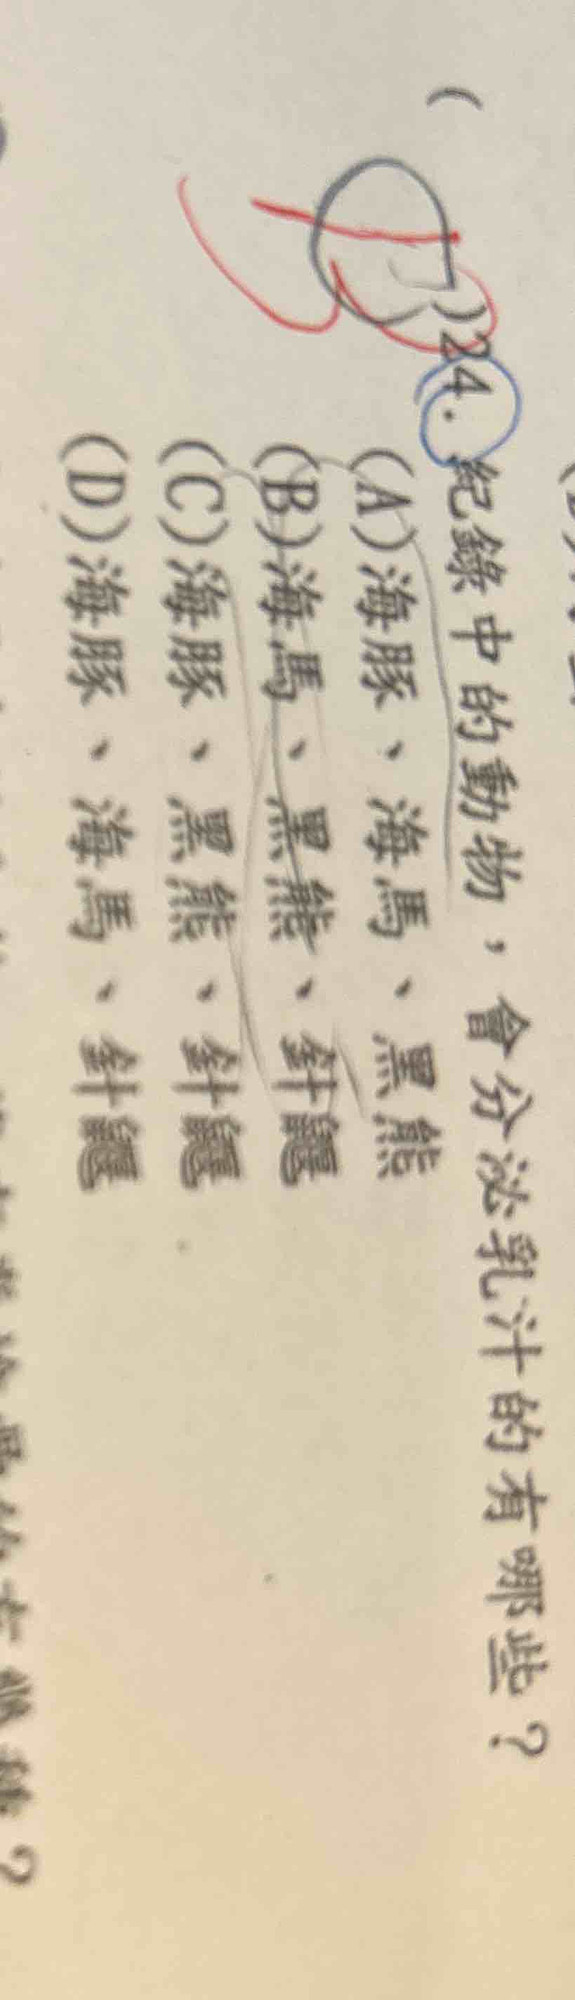 ( )24. 紀錄中的動物，會分泌乳汁的有哪些？
(A)海豚、海馬、黑熊
(B)海馬、黑熊、針鼴
(C)海豚、黑熊、針鼴
(D)海豚、海馬、針鼴